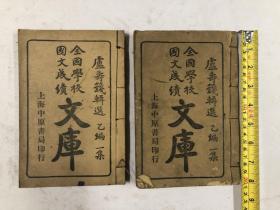 盧壽籛輯選 乙編 一集
全國學校
國文成績
文庫
上海中原書局印行
盧壽籛輯選 乙編 集
全國學校
國文成績
文庫
上海中原書局印行